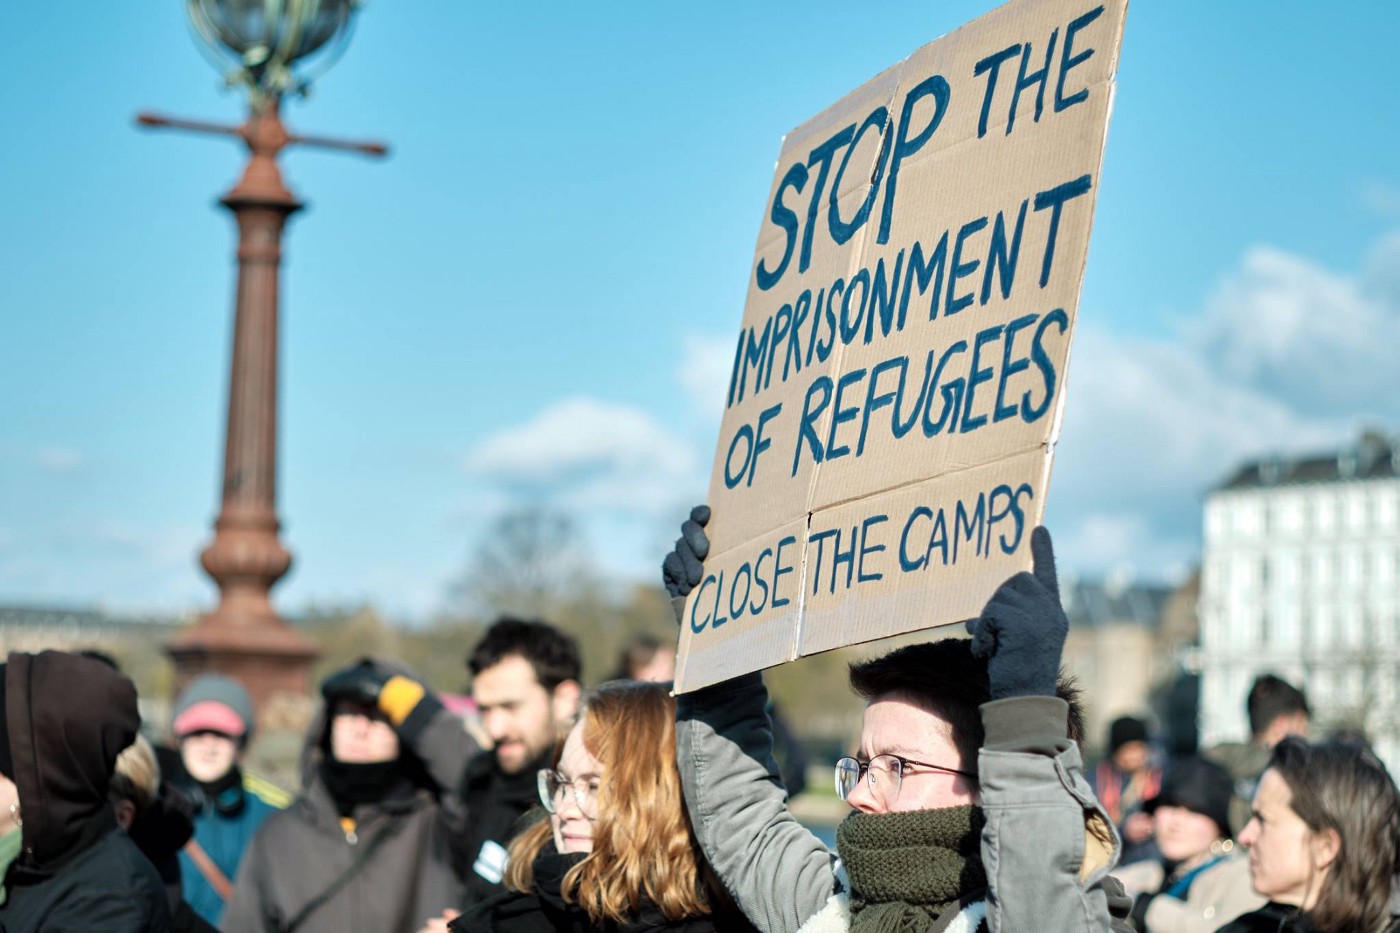 STOP THE
IMPRISONMENT
OF REFUGEES
CLOSE THE CAMPS